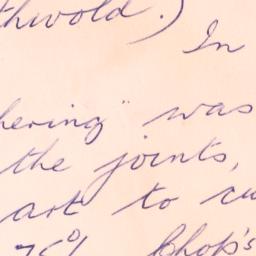 thwold.)
In
hering" was
the joints,
art to cu
75% Chop's